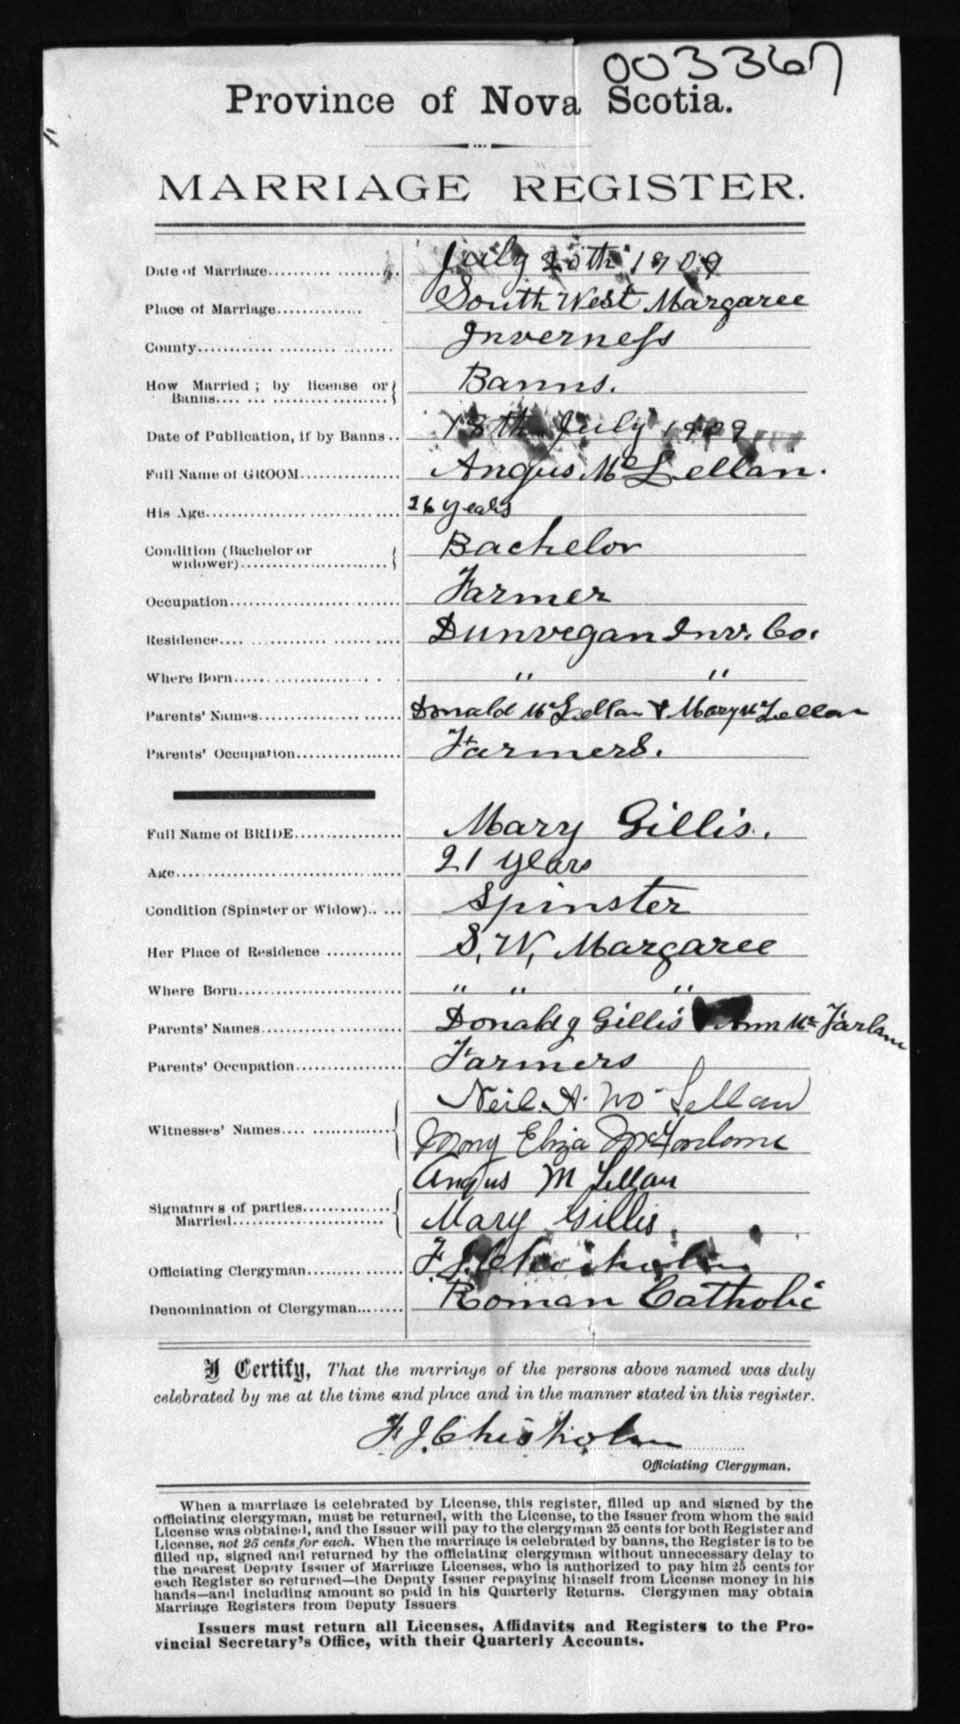 003367
Province of Nova Scotia.
MARRIAGE REGISTER.
Date of Marriage.......... July 20th 1909
Place of Marriage.............. South West Margaree
County.................... Inverness
How Married; by license or Banns.................... Banns.
Date of Publication, if by Banns.. 18th July 1909
Full Name of GROOM................ Angus McLellan.
His Age.................... years
Condition (Bachelor or widower).................... Bachelor
Occupation.................... Farmer
Residence.................... Dunvegan Inv. Co.
Where Born.................... " "
Parents' Names.................... Donald McLellan & Mary McLellan
Parents' Occupation.................... Farmers.
Full Name of BRIDE.................... Mary Gillis.
Age.................... 21 years
Condition (Spinster or Widow)..... Spinster
Her Place of Residence ............ S. W. Margaree
Where Born.................... " " "
Parents' Names.................... Donald J Gillis Ann McFarlane
Parents' Occupation.................... Farmers
Witnesses' Names.................... Neil A. McLellan
Mary Eliza McFarlane
Signatures of parties Married.................... Angus McLellan
Mary Gillis
Officiating Clergyman.............. F. J. Chisholm
Denomination of Clergyman........ Roman Catholic
I Certify, That the marriage of the persons above named was duly
celebrated by me at the time and place and in the manner stated in this register.
F J. Chisholm
Officiating Clergyman.
When a marriage is celebrated by License, this register, filled up and signed by the
officiating clergyman, must be returned, with the License, to the Issuer from whom the said
License was obtained, and the Issuer will pay to the clergyman 25 cents for both Register and
License, not 25 cents for each. When the marriage is celebrated by banns, the Register is to be
filled up, signed and returned by the officiating clergyman without unnecessary delay to
the nearest Deputy Issuer of Marriage Licenses, who is authorized to pay him 25 cents for
each Register so returned—the Deputy Issuer repaying himself from License money in his
hands—and including amount so paid in his Quarterly Returns. Clergymen may obtain
Marriage Registers from Deputy Issuers
Issuers must return all Licenses, Affidavits and Registers to the Pro-
vincial Secretary's Office, with their Quarterly Accounts.